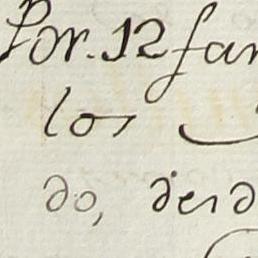 Por. 12 fan
los
do, desd